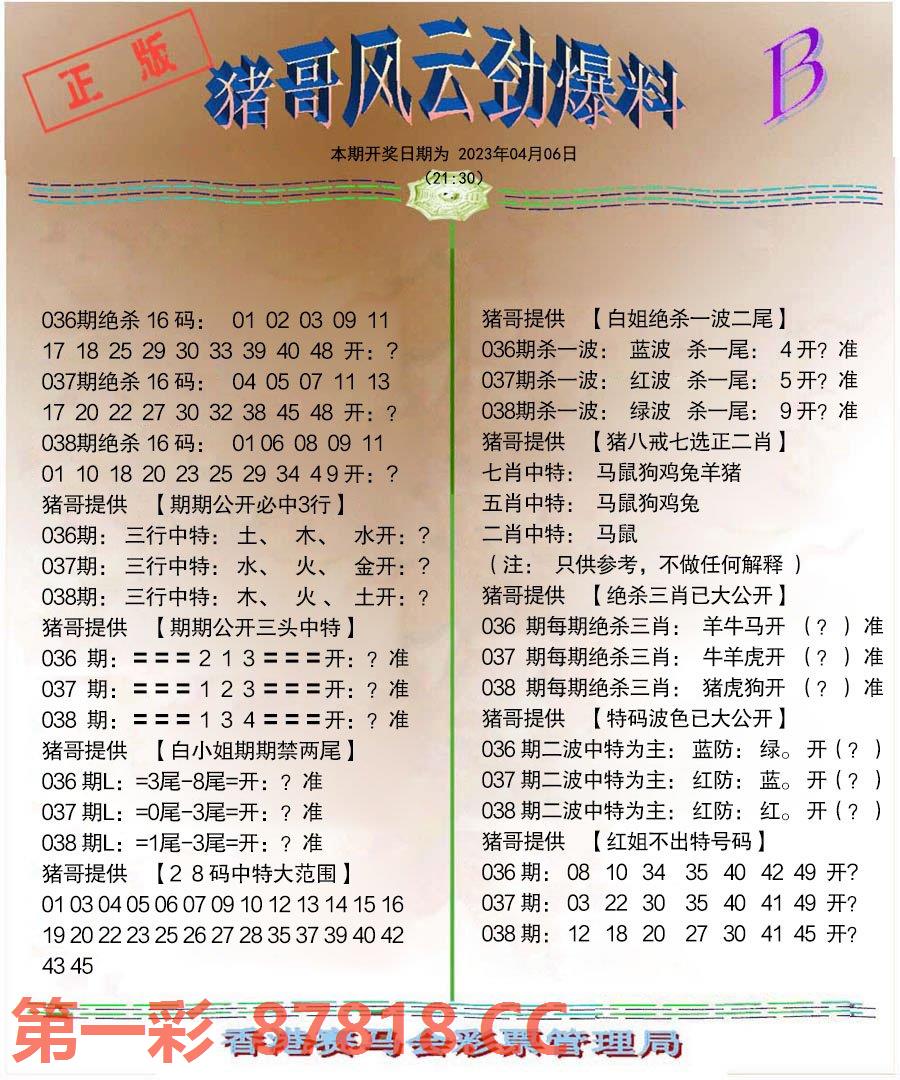 正版
猪哥风云劲爆料
B
本期开奖日期为 2023年04月06日
(21:30)
036期绝杀 16 码： 01 02 03 09 11
17 18 25 29 30 33 39 40 48 开：?
037期绝杀 16 码： 04 05 07 11 13
17 20 22 27 30 32 38 45 48 开：?
038期绝杀 16 码： 01 06 08 09 11
01 10 18 20 23 25 29 34 4 9 开：?
猪哥提供 【期期公开必中3行】
036期： 三行中特： 土、 木、 水开：?
037期： 三行中特： 水、 火、 金开：?
038期： 三行中特： 木、 火、 土开：?
猪哥提供 【期期公开三头中特】
036 期：＝＝＝2 1 3＝＝＝开：? 准
037 期：＝＝＝1 2 3＝＝＝开：? 准
038 期：＝＝＝1 3 4＝＝＝开：? 准
猪哥提供 【白小姐期期禁两尾】
036 期L：=3尾-8尾=开：? 准
037 期L：=0尾-3尾=开：? 准
038 期L：=1尾-3尾=开：? 准
猪哥提供 【2 8 码中特大范围】
01 03 04 05 06 07 09 10 12 13 14 15 16
19 20 22 23 25 26 27 28 35 37 39 40 42
43 45
猪哥提供 【白姐绝杀一波二尾】
036期杀一波： 蓝波 杀一尾： 4 开? 准
037期杀一波： 红波 杀一尾： 5 开? 准
038期杀一波： 绿波 杀一尾： 9 开? 准
猪哥提供 【猪八戒七选正二肖】
七肖中特： 马鼠狗鸡兔羊猪
五肖中特： 马鼠狗鸡兔
二肖中特： 马鼠
（注： 只供参考，不做任何解释 ）
猪哥提供 【绝杀三肖已大公开】
036 期每期绝杀三肖： 羊牛马开 （? ）准
037 期每期绝杀三肖： 牛羊虎开 （? ）准
038 期每期绝杀三肖： 猪虎狗开 （? ）准
猪哥提供 【特码波色已大公开】
036 期二波中特为主： 蓝防：绿。开（? ）
037 期二波中特为主： 红防：蓝。开（? ）
038 期二波中特为主： 红防：红。开（? ）
猪哥提供 【红姐不出特号码】
036 期： 08 10 34 35 40 42 49 开?
037 期： 03 22 30 35 40 41 49 开?
038 期： 12 18 20 27 30 41 45 开?
第一彩 87818.CC
香港赛马会彩票管理局